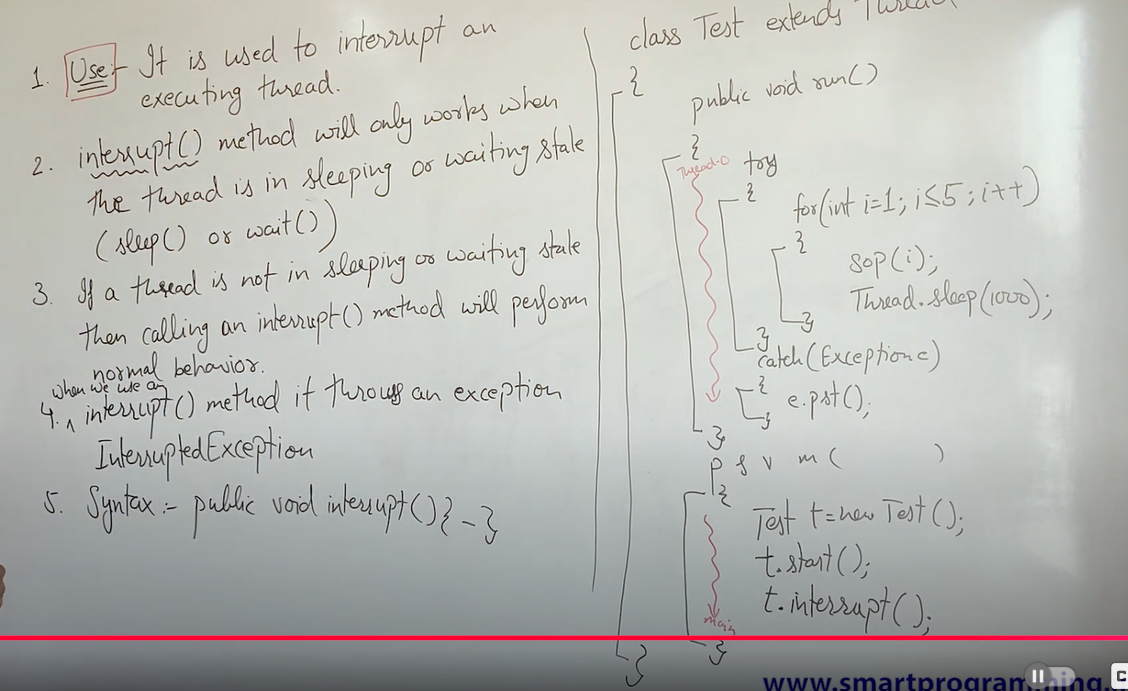 1. Use :- It is used to interrupt an
executing thread.
2. interrupt() method will only works when
the thread is in sleeping or waiting state
(sleep() or wait())
3. If a thread is not in sleeping or waiting state
then calling an interrupt() method will perform
normal behavior.
when we use an
4. interrupt() method it throws an exception
InterruptedException
5. Syntax :- public void interrupt() { - }
class Test extends Thread
{
public void run()
{
Thread-0
try
{
for(int i=1; i≤5; i++)
{
sop(i);
Thread.sleep(1000);
}
}
catch(Exception e)
{
e.pst();
}
}
p s v m ( )
{
Test t=new Test();
t.start();
t.interrupt();
main
}
}
www.smartprogramming.